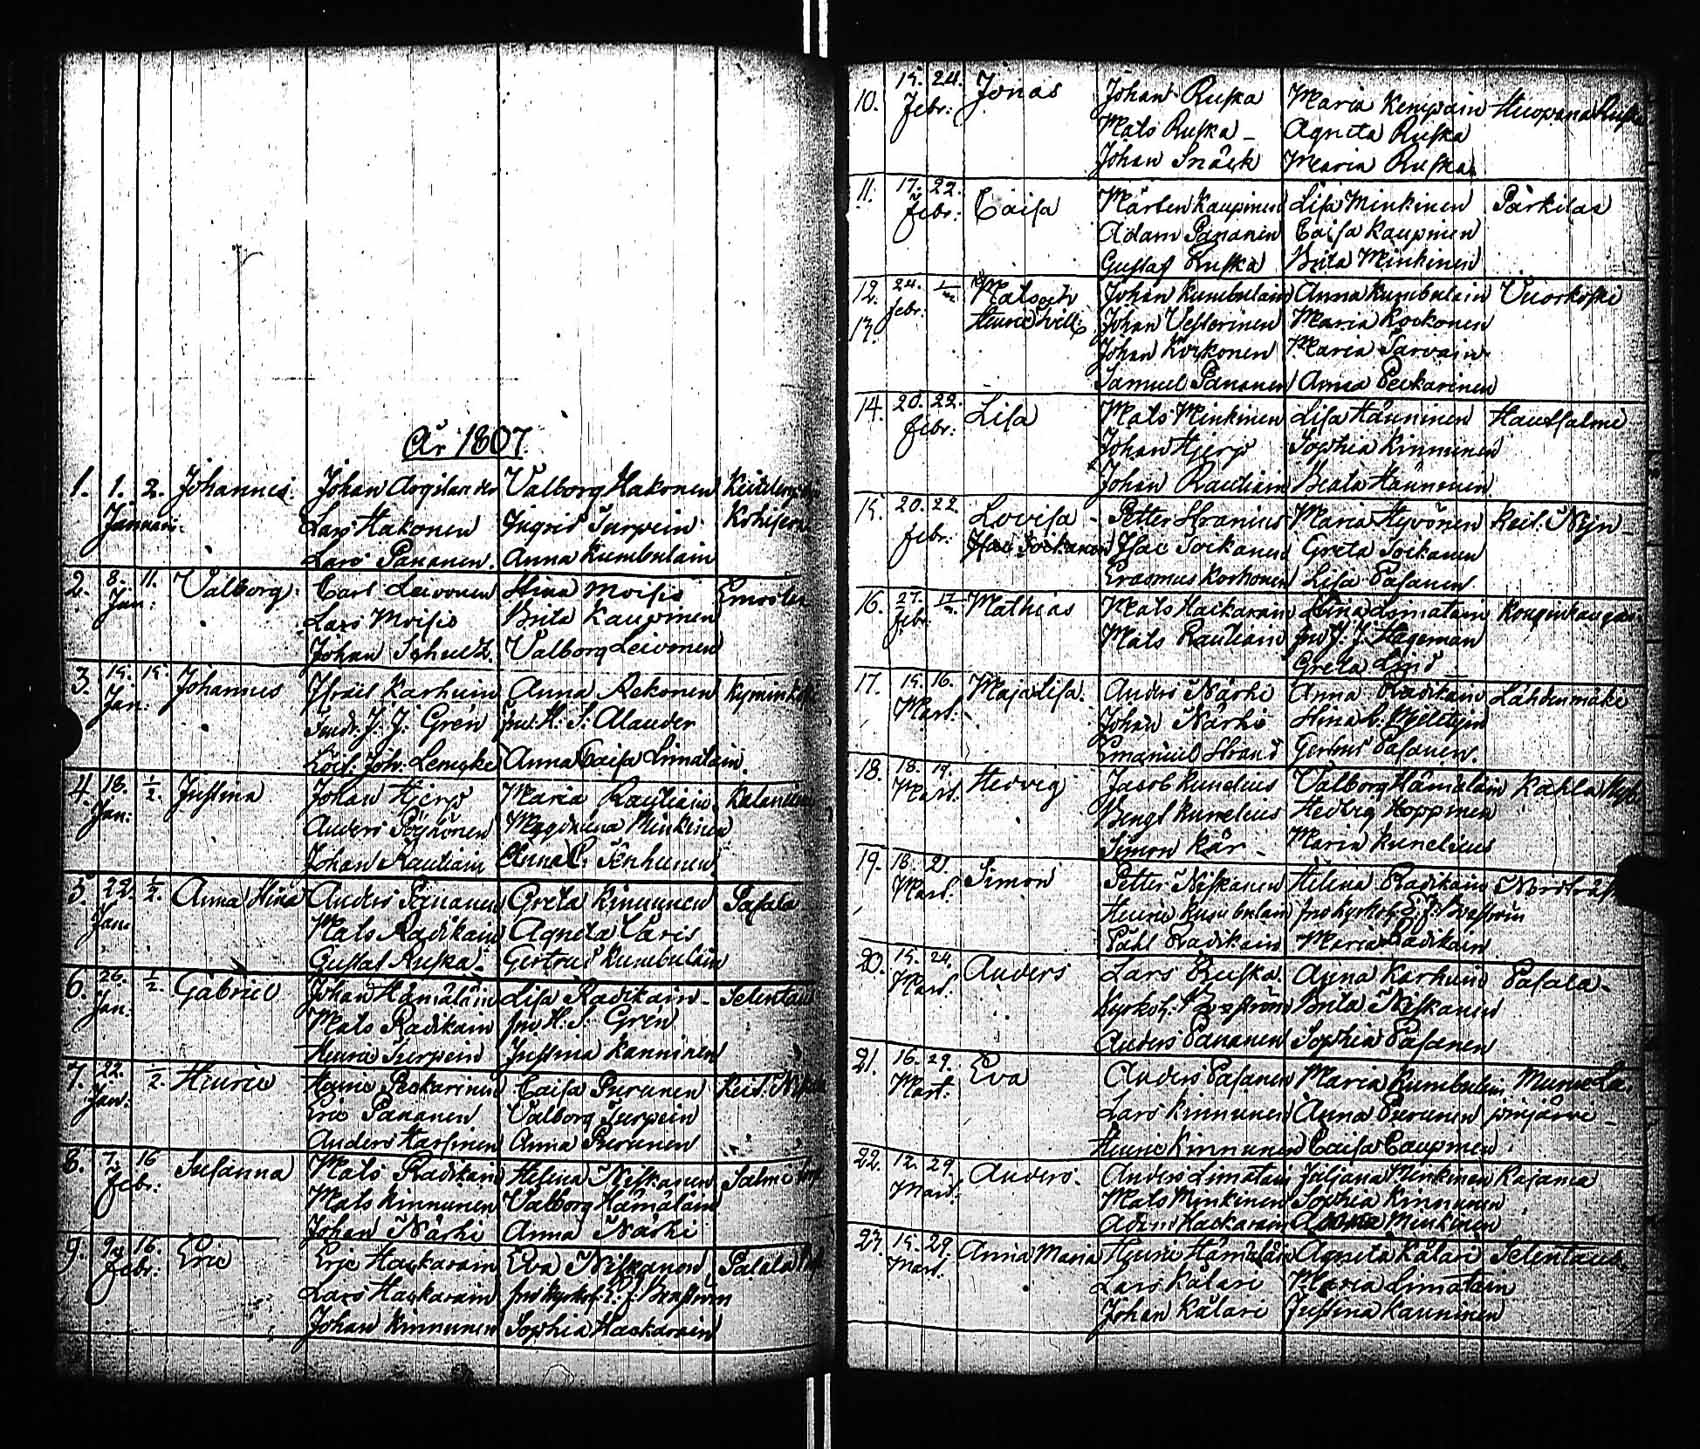 År 1807.
1. 1. 2. Johannes Johan Argilander Valborg Hakonen
Januari: Lars Hakonen Ingrid Turpein
Lars Pananen. Anna Kumbulain
2. 8. 11. Valborg Carl Leivonen Stina Moisio
Jan: Lars Moisio Brita Kaupinen
Johan Schultz Valborg Leivonen
3. 15. 15. Johannes Israel Karhuin Anna Aekonen
Jan: J. J. Grén fru H. S. Alander
Joh. Lemske Anna Caisa Limatain
4. 18. 1/2. Justina Johan Hjerp Maria Rautiain
Jan: Anders Pöyhönen Magdalena Minkinen
Johan Rautiain Anna C. Tenhunen
5. 22. 1/2. Anna Stina Anders Pananen Greta Kinnunen Pasala
Jan: Mats Radikain Agneta Varis
Gustaf Ruska Gertrud Kumbulain
6. 26. 1/2. Gabriel Johan Hämäläin Lisa Radikain Selentaus
Jan: Mats Radikain fru H. S. Grén
Henric Turpein Justina Kanninen
7. 22. 1/2. Henric Henric Peckarinen Caisa Purunen
Jan: Eric Pananen Valborg Turpein
Anders Anna Purunen
8. 7. 16 Susanna Mats Radikain Helena Niskanen Salmi
Febr: Mats Kinnunen Valborg Hämäläin
Johan Närhi Anna Närhi
9. 9. 16. Eric Eric Hackarain Eva Niskanen
Febr: Lars Hackarain fru Kyrkoh. E. J. Brofström
Johan Kinnunen Sophia Hackarain
10. 15. 24. Jonas Johan Ruska Maria Kempain
Febr: Mats Ruska Agneta Ruska
Johan Snäck Maria Ruska
11. 17. 22. Caisa Mårten Kaupinen Lisa Minkinen Pärkilas
Febr: Adam Pananen Caisa Kaupinen
Gustaf Ruska Brita Minkinen
12. 24. 1/ Mats och Johan Kumbulain Anna Kumbulain Vuoskoski
13. febr: Henric Johan Vesterinen Maria Korkonen
Johan Korkonen Maria Parvain
Samuel Pananen Anna Peckarinen
14. 20. 22. Lisa Mats Minkinen Lisa Hänninen Hautsalmi
febr: Johan Hjerp Sophia Kinnunen
Johan Rautiain Beata Hänninen
15. 20. 22. Lovisa Petter Hranius Maria Hyvönen
febr: Isac Tockanen Greta Tockanen
Erasmus Korhonen Lisa Pasanen
16. 27. Mathias Mats Hackarain Stina Limatain Konginkangas
Febr: Mats Rautiain fru J. J. Hageman
Greta Lind
17. 15. 16. Maja Lisa Anders Närhi Anna Radikain Lahdenmäki
Mart: Johan Närhi
Emanuel Strand Gertrud Pasanen
18. 18. 19. Hedvig Jacob Kunelius Valborg Hämäläin
Mart: Bengt Kunelius Hedvig Hoppinen
Simon Kär Maria Kunelius
19. 18. 21. Simon Petter Niskanen Helena Radikain
Mart: Henric Kumbulain fru Kyrkoh. E. J. Brofström
Påhl Radikain Maria Radikain
20. 15. 24. Anders Lars Ruska Anna Karhuin Pasala
Mart: Kyrkoh. Brofström Brita Niskanen
Anders Pananen Sophia Pasanen
21. 16. 29. Eva Anders Pasanen Maria Kumbulain
Mart: Lars Kinnunen Anna Purunen
Henric Kinnunen Caisa Caupinen
22. 12. 29. Anders Anders Limatain Juliana Minkinen
Mart: Mats Minkinen Sophia Kinnunen
Adam Hackarain Anna Minkinen
23. 15. 29. Anna Maria Henric Hämäläin Agneta Kälari Selentaus
Mart: Lars Kälari Maria Limatain
Johan Kälari Justina Kanninen